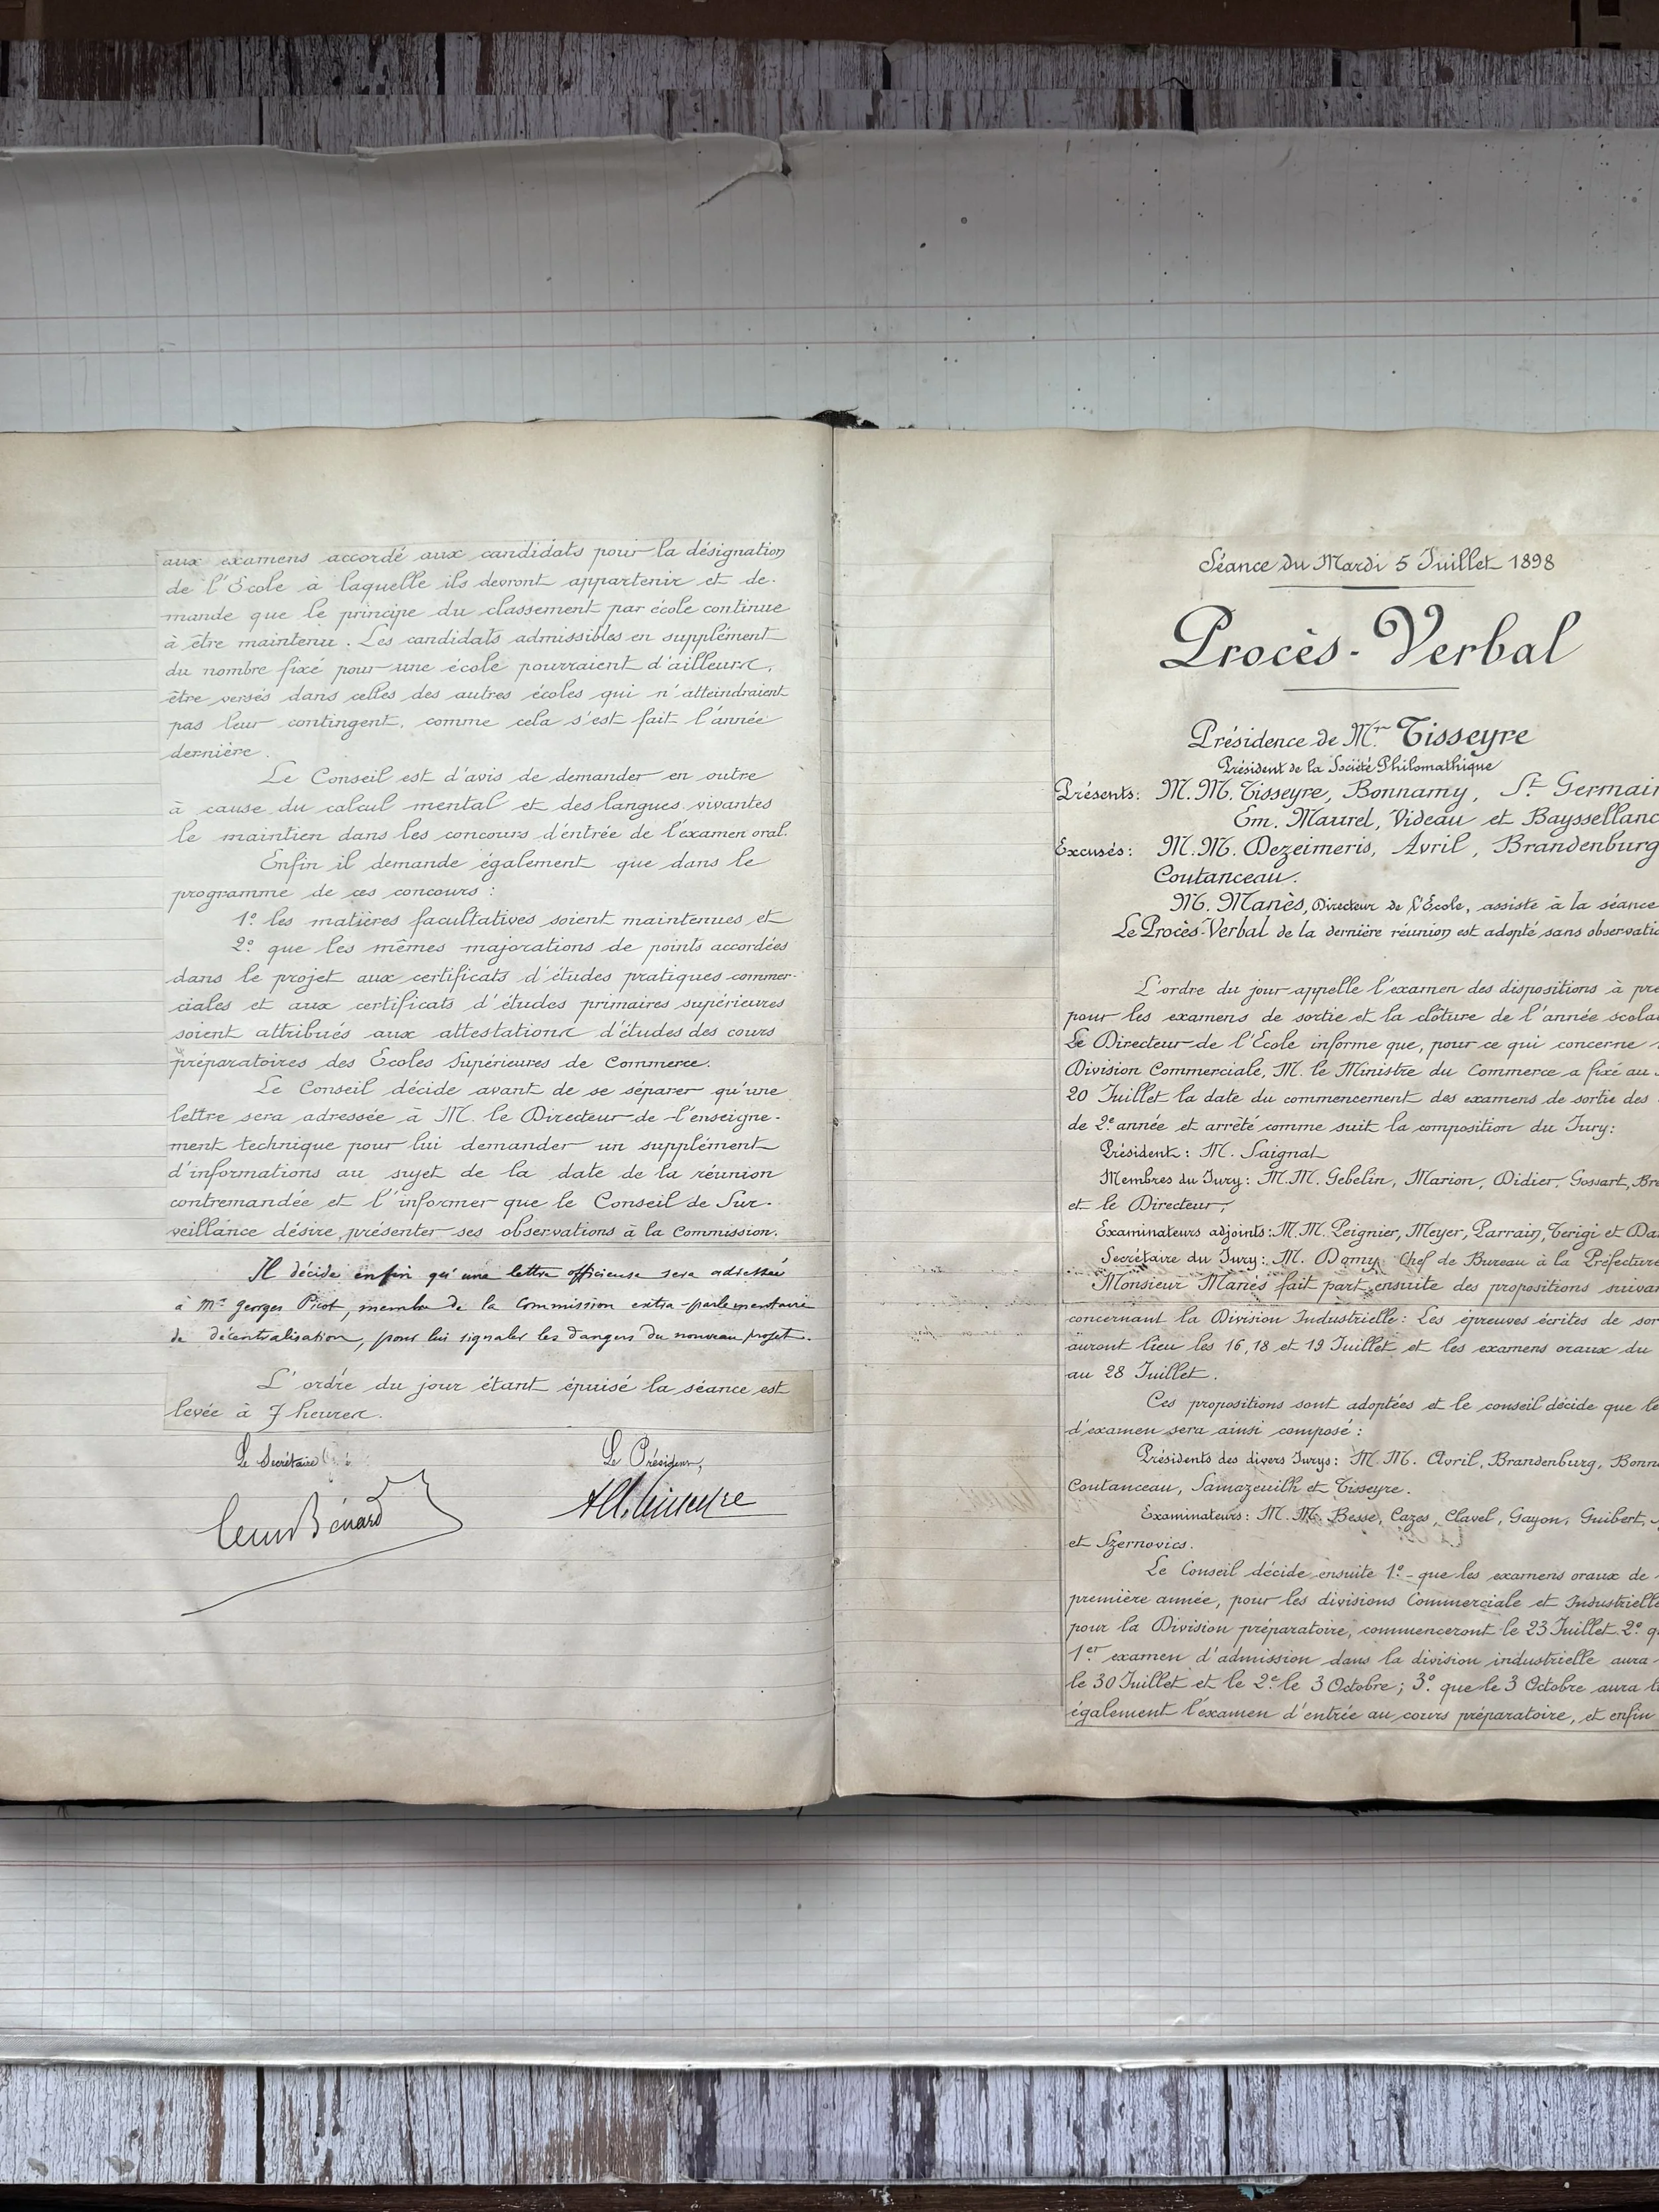 aux examens accordé aux candidats pour la désignation
de l'Ecole à laquelle ils devront appartenir et de-
mande que le principe du classement par école continue
à être maintenu. Les candidats admissibles en supplément
du nombre fixé pour une école pourraient d'ailleurs,
être versés dans celles des autres écoles qui n'atteindraient
pas leur contingent, comme cela s'est fait l'année
dernière.
Le Conseil est d'avis de demander en outre
à cause du calcul mental et des langues vivantes
le maintien dans les concours d'entrée de l'examen oral.
Enfin il demande également que dans le
programme de ces concours :
1º les matières facultatives soient maintenues et
2º que les mêmes majorations de points accordées
dans le projet aux certificats d'études pratiques commer-
ciales et aux certificats d'études primaires supérieures
soient attribués aux attestations d'études des cours
préparatoires des Ecoles Supérieures de Commerce.
Le Conseil décide avant de se séparer qu'une
lettre sera adressée à M. le Directeur de l'enseigne-
ment technique pour lui demander un supplément
d'informations au sujet de la date de la réunion
contremandée et l'informer que le Conseil de Sur-
veillance désire présenter ses observations à la Commission.
Il décide enfin qu'une lettre officieuse sera adressée
à Mr Georges Picot, membre de la Commission extra-parlementaire
de décentralisation, pour lui signaler les dangers du nouveau projet.
L'ordre du jour étant épuisé la séance est
levée à 7 heures.
Le Secrétaire
Le Président,
Bénard
Tisseyre
Séance du Mardi 5 Juillet 1898
Procès-Verbal
Présidence de Mr Tisseyre
Président de la Société Philomathique
Présents : M.M. Tisseyre, Bonnamy, St Germain
Em. Maurel, Videau et Baysselanc
Excusés : M.M. Dezeimeris, Avril, Brandenburg
Coutanceau.
M. Manès, Directeur de l'Ecole, assiste à la séance
Le Procès-Verbal de la dernière réunion est adopté sans observatio
L'ordre du jour appelle l'examen des dispositions à pre
pour les examens de sortie et la clôture de l'année scola
Le Directeur de l'Ecole informe que, pour ce qui concerne
Division Commerciale, M. le Ministre du Commerce a fixé au
20 Juillet la date du commencement des examens de sortie des
de 2e année et arrêté comme suit la composition du Jury:
Président : M. Saignat
Membres du Jury : M.M. Gebelin, Marion, Didier, Gossart, Br
et le Directeur,
Examinateurs adjoints : M.M. Peignier, Meyer, Parrain, Terigi et Da
Secrétaire du Jury : M. Domy Chef de Bureau à la Préfecture
Monsieur Manès fait part ensuite des propositions suivan
concernant la Division Industrielle : Les épreuves écrites de sor
auront lieu les 16, 18 et 19 Juillet et les examens oraux du
au 28 Juillet.
Ces propositions sont adoptées et le conseil décide que le
d'examen sera ainsi composé :
Présidents des divers Jurys : M.M. Avril, Brandenburg, Bonn
Coutanceau, Samazeuilh et Tisseyre.
Examinateurs : M.M. Besse, Cazes, Clavel, Gayon, Guibert,
et Szernovics.
Le Conseil décide ensuite 1º - que les examens oraux de
première année, pour les divisions Commerciale et Industrielle
pour la Division préparatoire, commenceront le 23 Juillet. 2º q
1er examen d'admission dans la division industrielle aura
le 30 Juillet et le 2e le 3 Octobre ; 3º que le 3 Octobre aura li
également l'examen d'entrée au cours préparatoire, et enfin